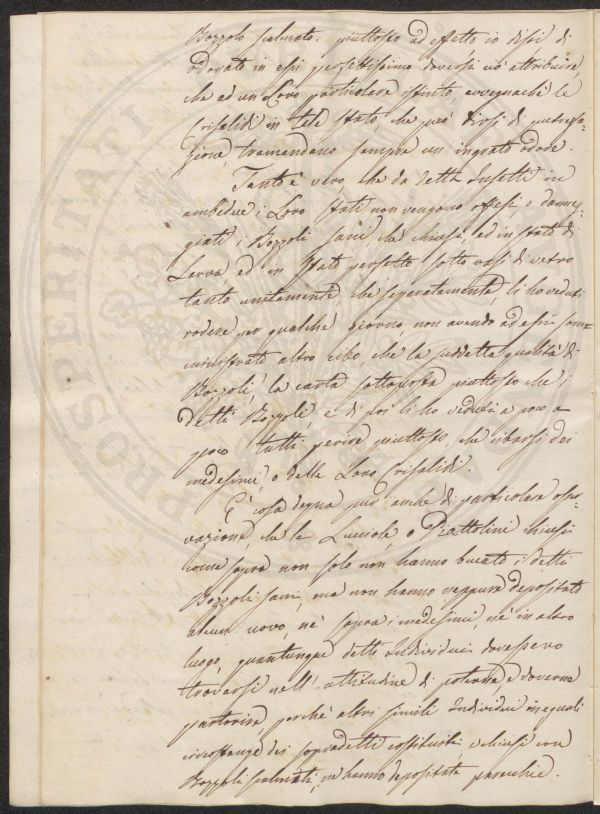 Bozzolo salmato: piuttosto ad effetto io dissi di
odorato in essi perfettissimo doversi ciò attribuire,
che ad un Loro particolare istinto, avvegnachè le
Crisalidi in tale stato, che può dirsi di putrefa-
zione, tramandano sempre un ingrato odore.
Tanto è vero, che da detti Insetti in
ambedue i Loro stati non vengono offesi, e danneg-
giati i Bozzoli sani, che chiusi, ed in stato di
Larva ed in stato perfetto sotto vasi di vetro
tanto unitamente, che separatamente, li ho veduti
rodere per qualche giorno, non avendo ad essi som-
ministrato altro cibo, che la suddetta qualità di
Bozzoli, la carta sottoposta piuttosto che i
detti Bozzoli, e di poi li ho veduti a poco a
poco tutti perire piuttosto, che cibarsi dei
medesimi o delle Loro Crisalidi.
È cosa degna pur anche di particolare osser-
vazione, che le Lucciole, o Piattolini chiusi
come sopra non solo non hanno bucato i detti
Bozzoli sani, ma non hanno neppure depositato
alcun uovo, nè sopra i medesimi nè in altro
luogo, quantunque detti Individui dovessero
trovarsi nell'attitudine di potere, e doverne
partorire, perchè altri simili Individui in eguali
circostanze dei sopradetti costituiti e chiusi con
Bozzoli salmati, ne hanno depositate parecchie.
PROSPERITATI